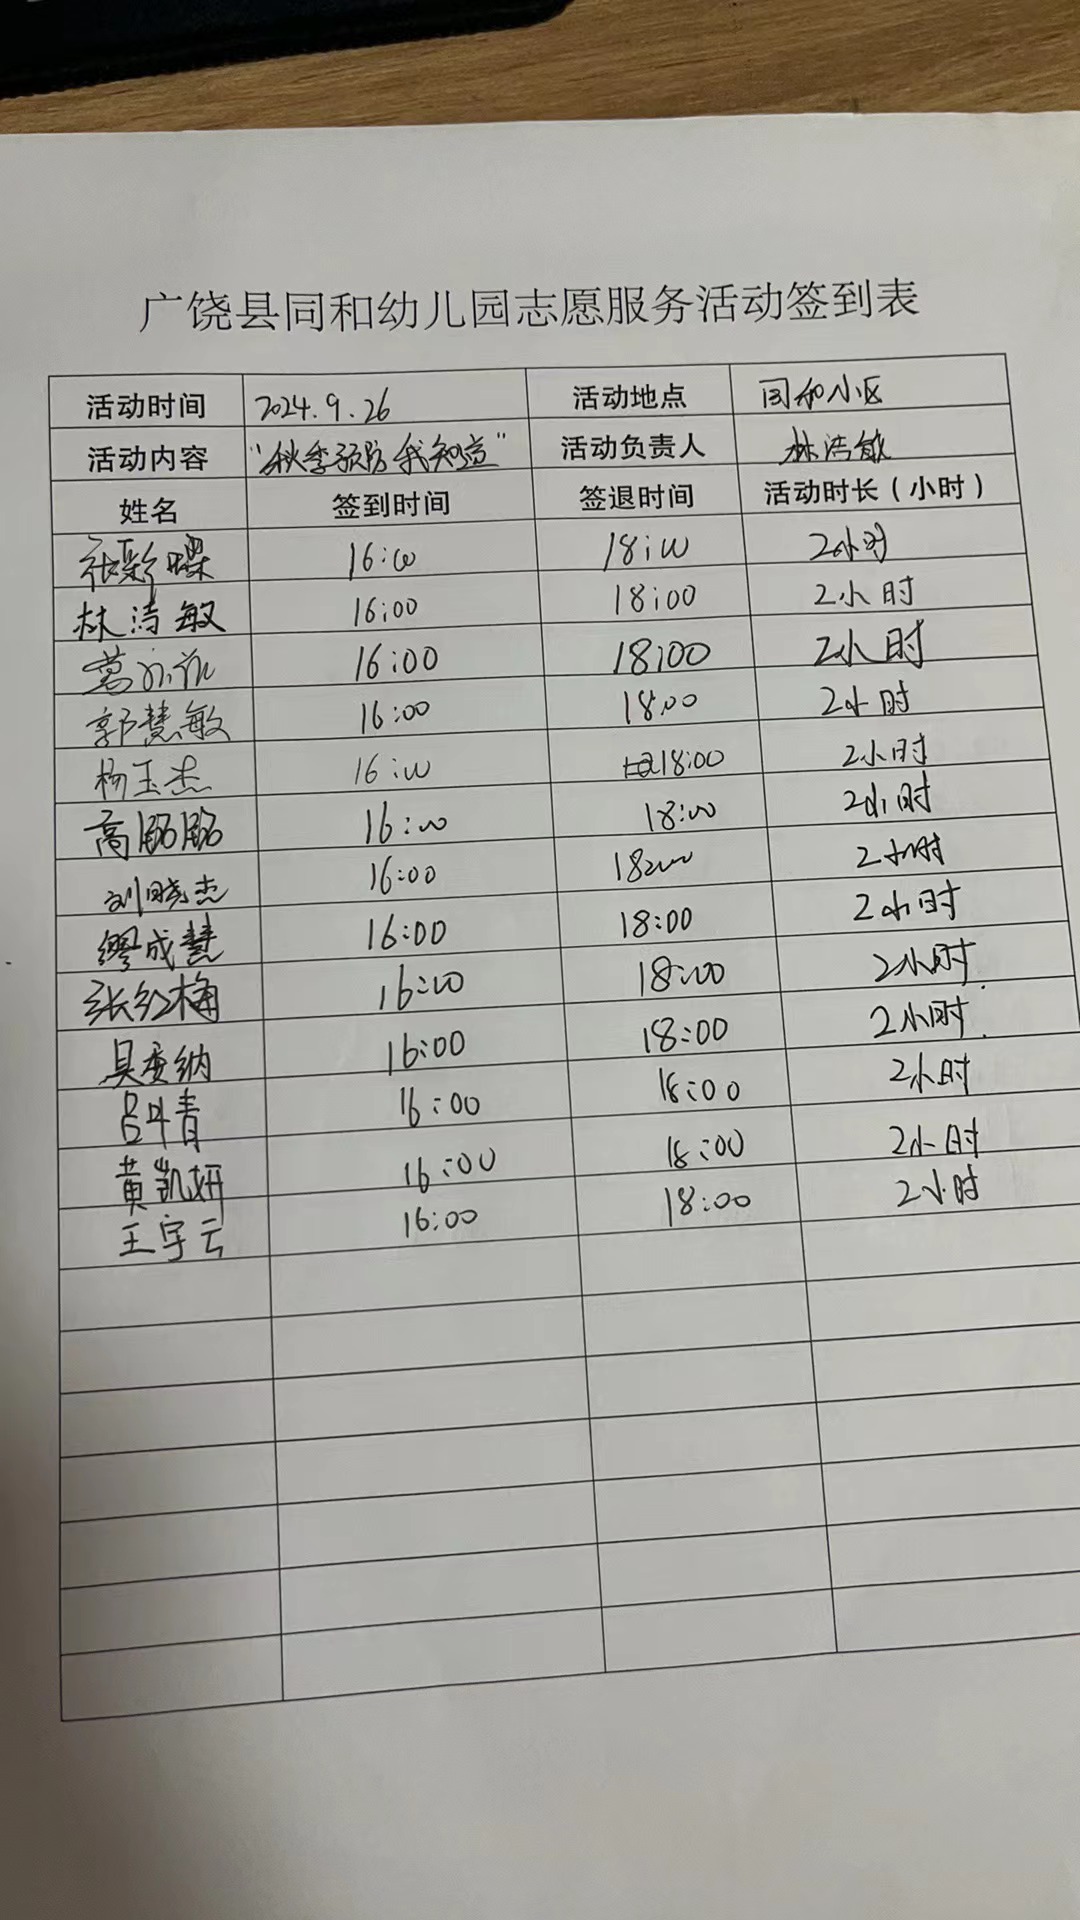 广饶县同和幼儿园志愿服务活动签到表
活动时间 2024.9.26 活动地点 同和小区
活动内容 "秋季预防我知道" 活动负责人 林洁敏
姓名 签到时间 签退时间 活动时长（小时）
16:00 18:00 2小时
林洁敏 16:00 18:00 2小时
葛 16:00 18:00 2小时
郭慧敏 16:00 18:00 2小时
杨玉杰 16:00 18:00 2小时
高 16:00 18:00 2小时
刘晓杰 16:00 18:00 2小时
缪成慧 16:00 18:00 2小时
张红梅 16:00 18:00 2小时
16:00 18:00 2小时
吕叶青 16:00 18:00 2小时
黄凯妍 16:00 18:00 2小时
王宇云 16:00 18:00 2小时